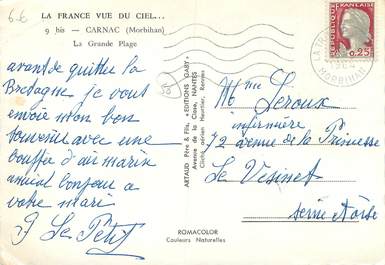 6-6
LA FRANCE VUE DU CIEL...
9 bis — CARNAC (Morbihan)
La Grande Plage
avant de quitter la
Bretagne je vous
envoie mon bon
souvenir avec une
bouffée d'air marin
amical bonjour a
votre mari
J Le Petit
ARTAUD Père & Fils, "EDITIONS GABY"
Avenue de la Close, NANTES
Cliché aérien Heurtier, Rennes
ROMACOLOR
Couleurs Naturelles
REPUBLIQUE FRANÇAISE
0,25
LA TRINITE
MORBIHAN
Mme Leroux
infirmière
72 avenue de la Princesse
Le Vesinet
Seine et Oise